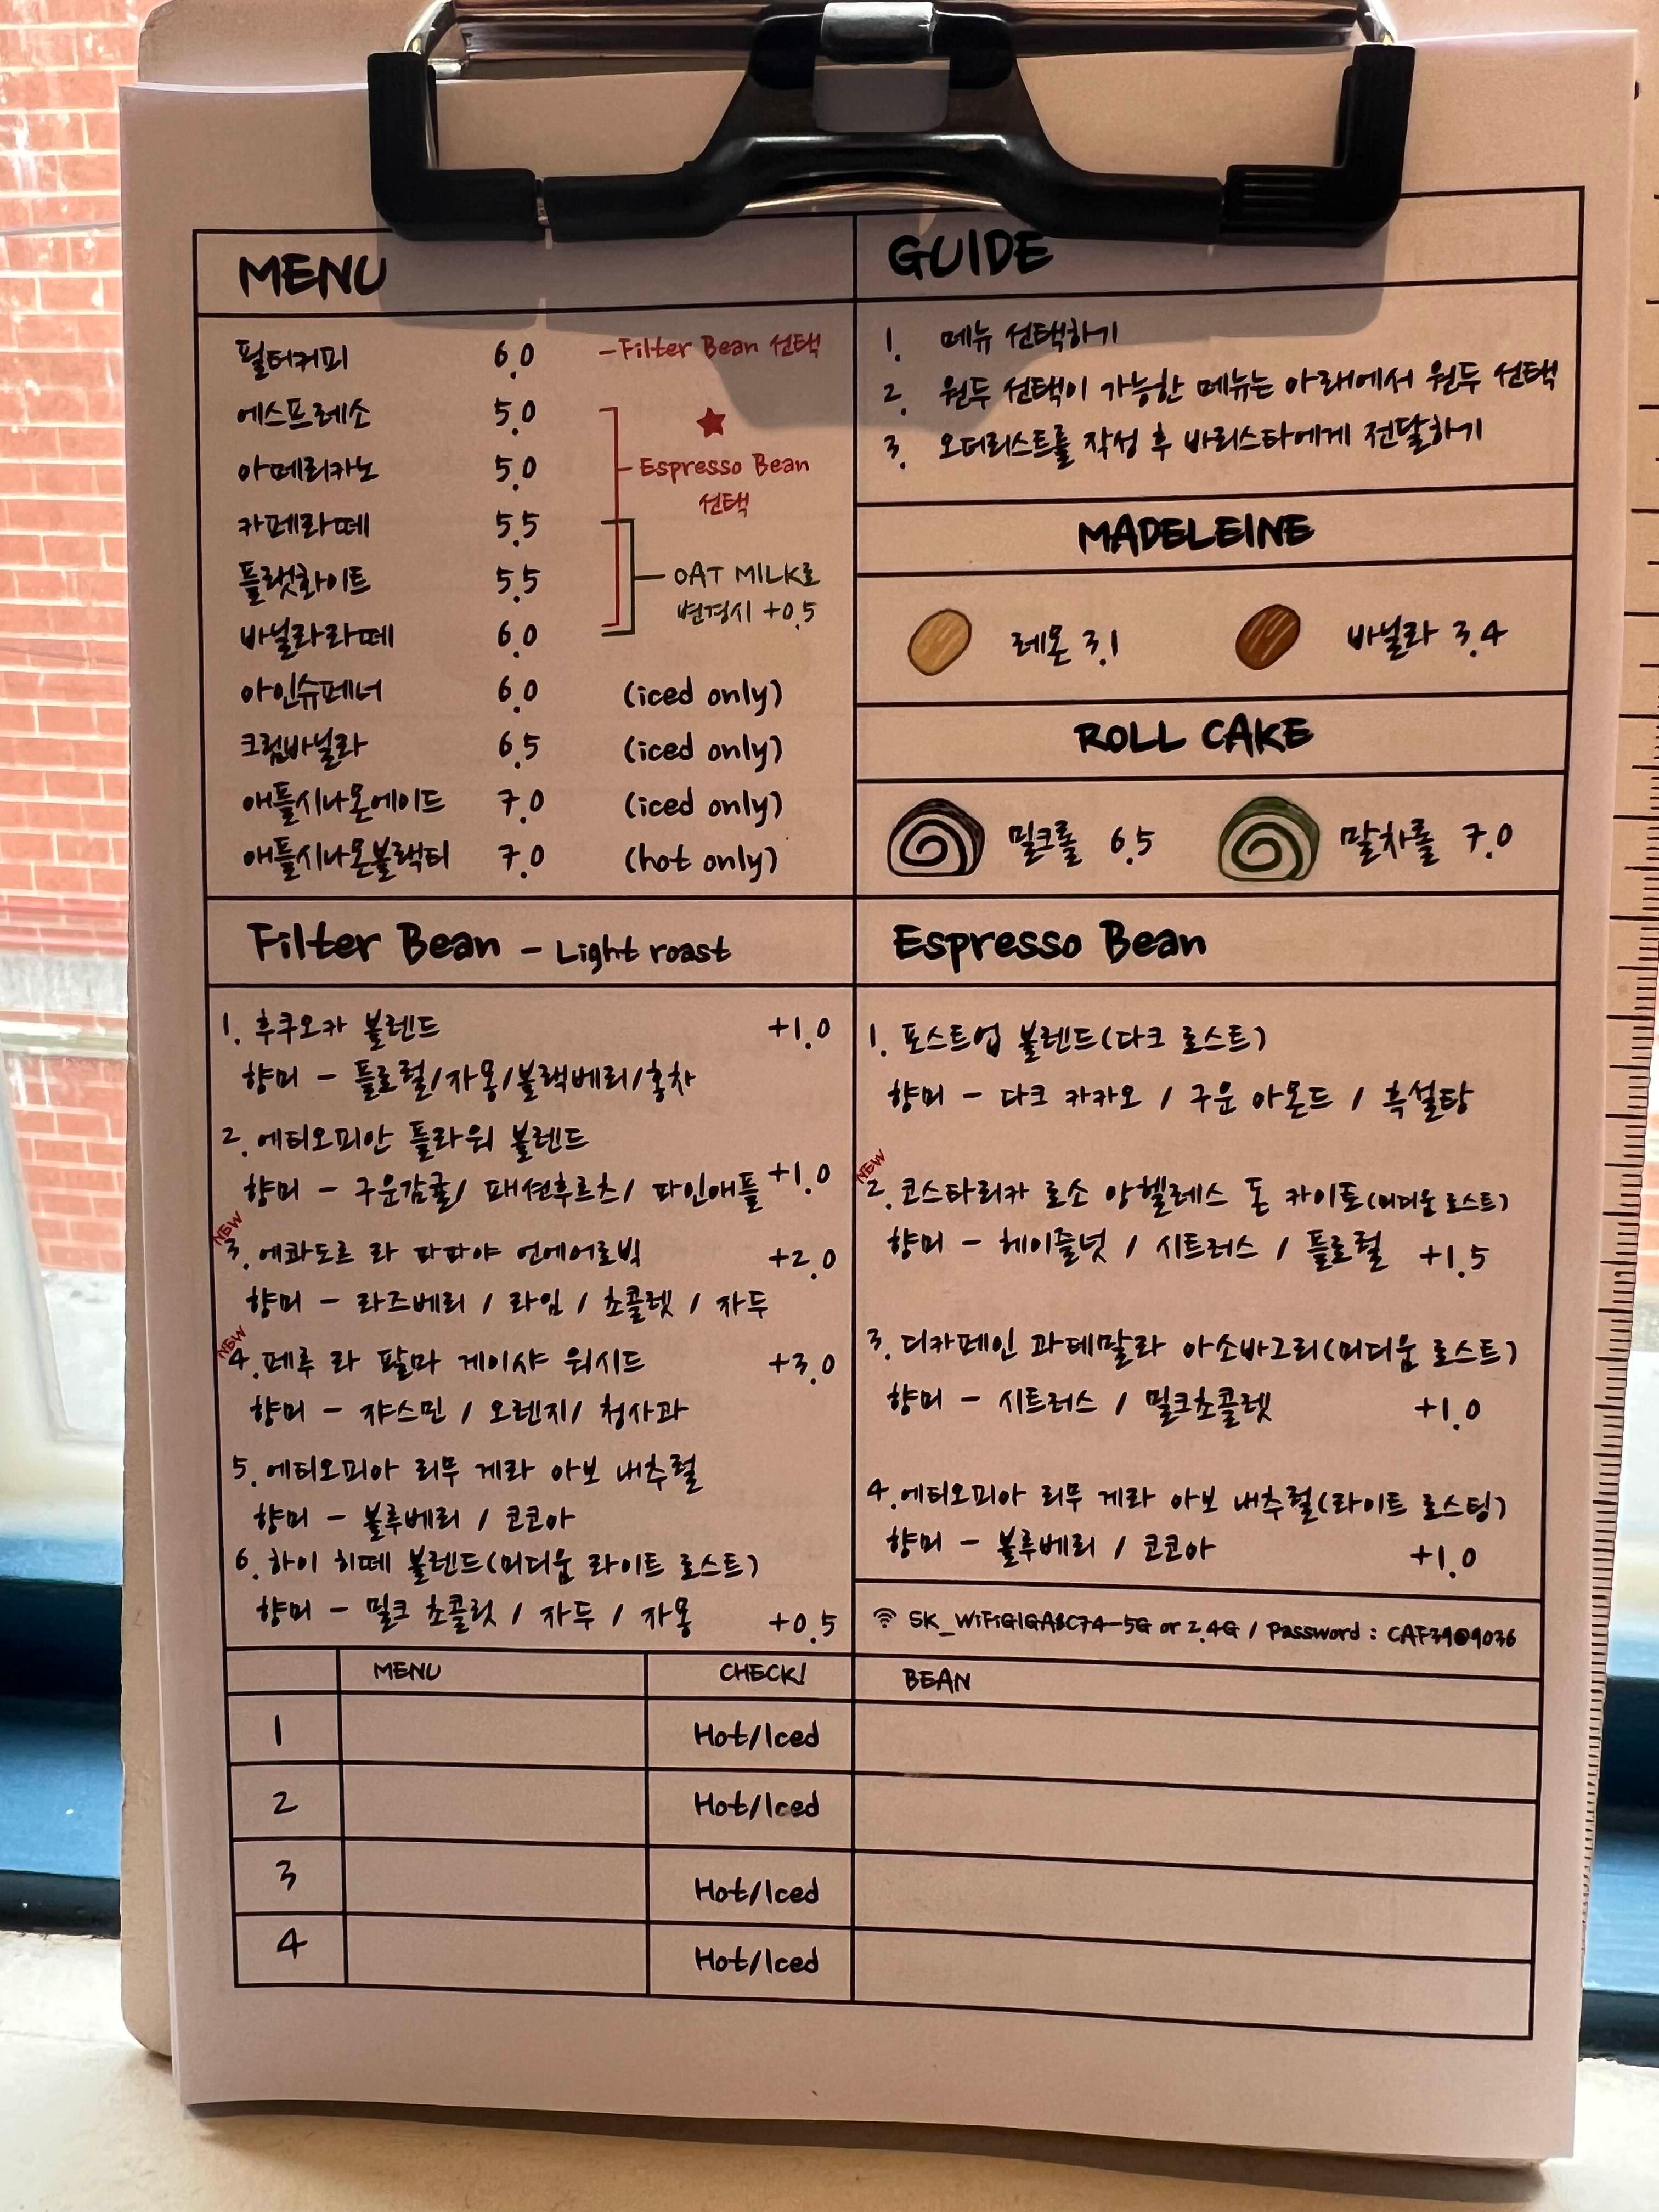 MENU
필터커피 6.0 -Filter Bean 선택
에스프레소 5.0
아메리카노 5.0
카페라떼 5.5
플랫화이트 5.5
바닐라라떼 6.0
★
Espresso Bean
선택
OAT MILK로
변경시 +0.5
아인슈페너 6.0 (iced only)
크림바닐라 6.5 (iced only)
애플시나몬에이드 7.0 (iced only)
애플시나몬블랙티 7.0 (hot only)
GUIDE
1. 메뉴 선택하기
2. 원두 선택이 가능한 메뉴는 아래에서 원두 선택
3. 오더리스트를 작성 후 바리스타에게 전달하기
MADELEINE
레몬 3.1 바닐라 3.4
ROLL CAKE
밀크롤 6.5 말차롤 7.0
Filter Bean - Light roast
1. 후쿠오카 블렌드 +1.0
향미 - 플로럴/자몽/블랙베리/홍차
2. 에티오피안 플라워 블렌드
향미 - 구운감귤/ 패션후르츠/ 파인애플 +1.0
NEW
3. 에콰도르 라 파파야 언에어로빅 +2.0
향미 - 라즈베리 / 라임 / 초콜렛 / 자두
NEW
4. 페루 라 팔마 게이샤 워시드 +3.0
향미 - 쟈스민 / 오렌지/ 청사과
5. 에티오피아 리무 게라 아보 내추럴
향미 - 블루베리 / 코코아
6. 하이 히떼 블렌드(미디움 라이트 로스트)
향미 - 밀크 초콜릿 / 자두 / 자몽 +0.5
Espresso Bean
1. 포스트업 블렌드(다크 로스트)
향미 - 다크 카카오 / 구운 아몬드 / 흑설탕
NEW
2. 코스타리카 로소 앙헬레스 돈 카이토(미디움 로스트)
향미 - 헤이즐넛 / 시트러스 / 플로럴 +1.5
3. 디카페인 과테말라 아소바그리(미디움 로스트)
향미 - 시트러스 / 밀크초콜렛 +1.0
4. 에티오피아 리무 게라 아보 내추럴(라이트 로스팅)
향미 - 블루베리 / 코코아 +1.0
SK_WiFiGIGA8C74-5G or 2.4G / Password : CAF39@9036
MENU CHECK! BEAN
1 Hot/Iced
2 Hot/Iced
3 Hot/Iced
4 Hot/Iced